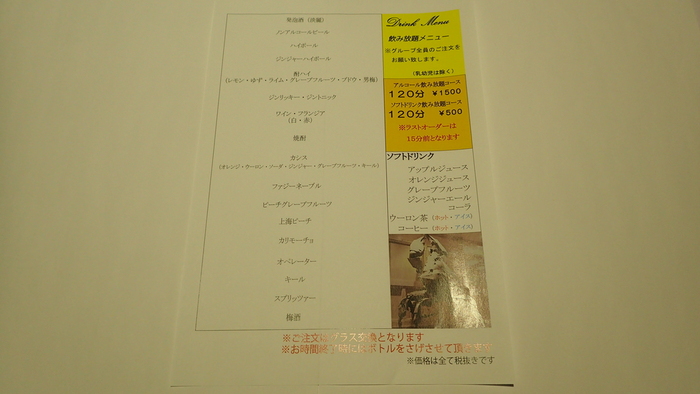 発泡酒（淡麗）
ノンアルコールビール
ハイボール
ジンジャーハイボール
酎ハイ
（レモン・ゆず・ライム・グレープフルーツ・ブドウ・男梅）
ジンリッキー・ジントニック
ワイン・フランジア
（白・赤）
焼酎
カシス
（オレンジ・ウーロン・ソーダ・ジンジャー・グレープフルーツ・キール）
ファジーネーブル
ピーチグレープフルーツ
上海ピーチ
カリモーチョ
オペレーター
キール
スプリッツァー
梅酒
Drink Menu
飲み放題メニュー
※グループ全員のご注文を
お願い致します。
（乳幼児は除く）
アルコール飲み放題コース
120分 ￥1500
ソフトドリンク飲み放題コース
120分 ￥500
※ラストオーダーは
15分前となります
ソフトドリンク
アップルジュース
オレンジジュース
グレープフルーツ
ジンジャーエール
コーラ
ウーロン茶（ホット・アイス）
コーヒー（ホット・アイス）
※ご注文はグラス交換となります
※お時間終了時にはボトルをさげさせて頂きます
※価格は全て税抜きです